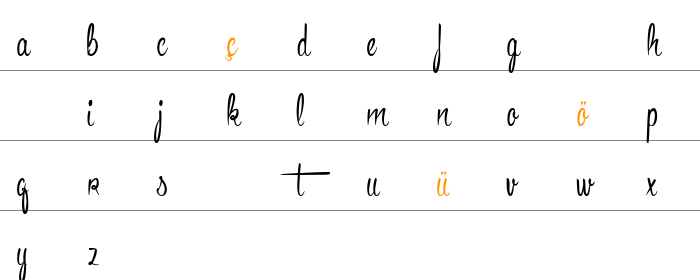 a b c ç d e f g h
i j k l m n o ö p
q r s t u ü v w x
y z